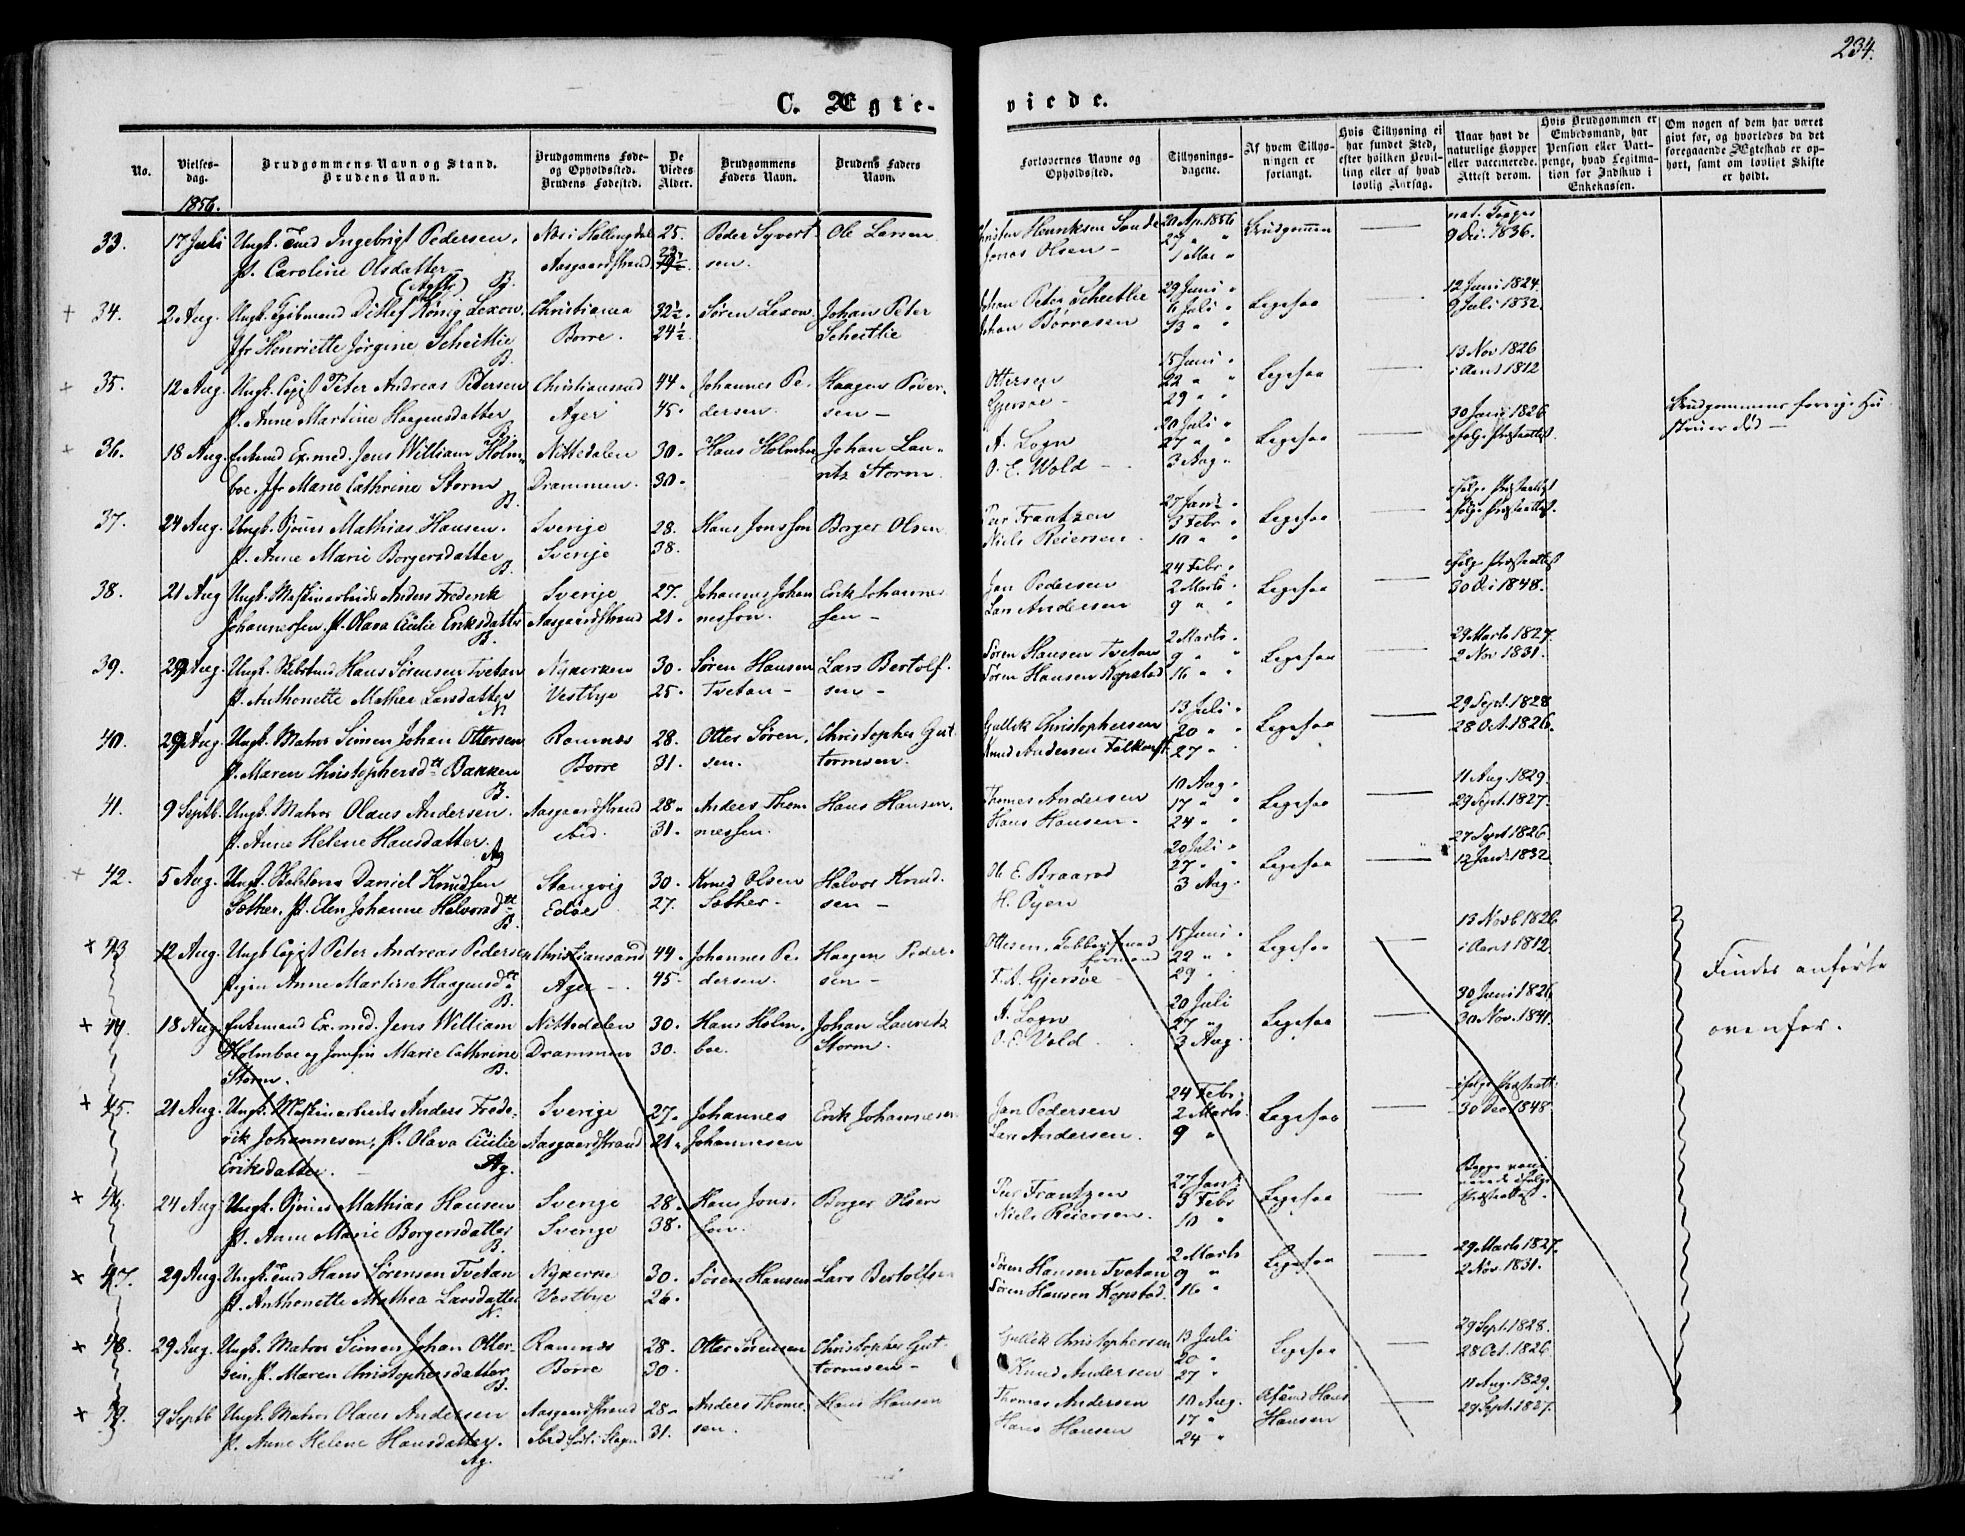 234.
C. Ægte-viede.
No.
Vielses-dag.
Brudgommens Navn og Stand.
Brudens Navn.
Brudgommens Føde- og Opholdssted.
Brudens Fødested.
De Viedes Alder.
Brudgommens Faders Navn.
Brudens Faders Navn.
Forlovernes Navne og Opholdssted.
Tillysnings-dagene.
Af hvem Tillysningen er forlangt.
Hvis Tillysning ei har fundet Sted, efter hvilken Bevilling eller af hvad lovlig Aarsag.
Naar havt de naturlige Kopper eller vaccinerede. Attest derom.
Hvis Brudgommen er Embedsmand, har Pension eller Vartpenge, hvad Legitimation for Indskud i Enkekassen.
Om nogen af dem har været givt for, og hvorledes da det foregaaende Ægteskab er ophørt, samt om lovligt Skifte er holdt.
1856.
33. 17 Juli Ungk. Ingebrigt Pedersen. Næs i Hallingdal 25. Peder Syvert Ole Larsen Henriksen Sande 20 Ap. 1856 Brudgommen
P. Caroline Olsdatter Aasgaardstrand sen. Jonas Olsen 27 " " 9 Dec. 1836.
B. 1 Mai "
34. 2 Aug. Ungk. Ditlef König Lexow Christiania 32½. Sören Lexow Johan Peter Johan Peter Scheitlie 29 Juni " Begge 12 Juni 1824.
Jfr Henriette Jørgine Scheitlie Borre. 24½ Scheitlie Johan Børresen 6 Juli " 9 Juli 1832.
B. 13 " "
35. 12 Aug. Ungk. Peter Andreas Pedersen Christianssand 44. Johannes Pe- Haagen Peder- Ottersen 15 Juni " Begge 13 Nov 1826
P. Anne Martine Haagensdatter Ager 45. dersen. sen Gjersøe 22 " " i Aaret 1812
B. 29 " "
36. 18 Aug. Enkemd Ex. med. Jens William Holm- Nittedalen 30. Hans Holmboe Johan Lau- A. Logn 20 Juli " Begge 30 Juni 1826 Brudgommens forrige Hu-
boe. Jfr Marie Cathrine Storm Drammen. 30. ritz Storm. O. E. Wold 27 " " strue død
B. 3 Aug "
37. 24 Aug. Ungk. Mathias Hansen. Sverige 28. Hans Jonsson Borger Olsen Per Frantzen 27 Jan " Begge
P. Anne Marie Borgersdatter Sverige 38. Niels Reiersen 3 Febr "
B. 10 " "
38. 21 Aug Ungk. Maskinarbeider Anders Frederik Sverige 27. Johannes Johan Erik Johannes Jan Pedersen 24 Febr " Begge
Johannessen. P. Olava Cicilie Eriksdatter Aasgaardstrand 21. nesson. sen Lars Andersen 2 Marts " 30 Dec 1848.
B. 9 " "
39. 29 Aug. Ungk. Hans Sørensen Tvetan Nykirken 30. Søren Hansen Lars Bertolf- Søren Hansen Tvetan 2 Marts " Begge 29 Marts 1827.
P. Anthonette Mathea Larsdatter Vestbye 25. Tvetan sen Søren Hansen Kopstad 9 " " 2 Nov 1831.
N. 16 " "
40. 29 Aug. Ungk. Matros Simen Johan Ottersen Ramnes 28. Otter Søren- Christopher Gut- Gullek Christophersen 13 Juli " Begge 29 Sept. 1828
P. Maren Christophersdtr Bakken Borre 31. sen. tormsen. Knud Andersen 20 " " 28 Oct. 1826.
B. 27 " "
41. 9 Septb. Ungk. Matros Olaus Andersen. Aasgaardstrand 28. Anders Thom- Hans Hansen. Thomas Andersen 10 Aug " Begge 11 Aug. 1829.
P. Anne Helene Hansdatter. ibid. 31. messen. Hans Hansen 17 " " 29 Sept. 1827.
Ag 24 " "
42. 5 Aug. Ungk. Daniel Knudsen Stangvig 30. Knud Olsen Halvor Knud- Ole E. Braarød 20 Juli " Begge 27 Sept 1826
Sæther. P. Elen Johanne Halvorsdtr Edøe 27. Sæther. sen H. Øyen 27 " " 12 Jan. 1832
B. 3 Aug.
43 12 Aug. Ungk. Peter Andreas Pedersen Christianssand 44. Johannes Pe- Haagen Peder- Ottesen, 15 Juni " Begge 13 Novb 1826
Pigen Anne Martine Haagensdtr Ager 45. dersen. sen F. A. Gjersøe 22 " " i Aaret 1812 Findes anførte
B. 29 "
44. 18 Aug. Enkemand Ex. med. Jens William Nittedalen 30. Hans Holm- Johan Lauritz A. Logn 20 Juli Begge 30 Juni 1826 ovenfor.
Holmboe og Jomfru Marie Cathrine Drammen 30. boe. Storm. O. E. Vold 27 " 30 Nov. 1841.
Storm. B. 3 Aug.
45. 21 Aug. Ungk. Maskinarbeider Anders Frede- Sverige 27. Johannes Erik Johannesen Jan Pedersen 24 Febr. Begge
rik Johannesen, P. Olava Cicilie Aasgaardstrand 21. Johannesen Lars Andersen. 2 Marts 30 Dec 1848
Eriksdatter. Ag. 9 "
46. 24 Aug. Ungk. Mathias Hansen Sverige 28. Hans Jons- Borger Olsen Per Frantzen 27 Jan Begge
P. Anne Marie Borgersdatter Sverige 38. son. Niels Reiersen. 3 Febr
B. 10 "
47. 29 Aug. Ungk. Hans Sørensen Tvetan Nykirke 30. Søren Hansen Lars Bertolfsen Søren Hansen Tvetan 2 Marts Begge 29 Marts 1827.
P. Anthonette Mathea Larsdatter Vestbye 26. Søren Hansen Kopstad. 9 " 2 Nov. 1831.
N. 16 "
48. 29 Aug. Ungk. Matros Simen Johan Otter- Ramnes 28. Otter Sørensen Christopher Gut- Gullek Christophersen 13 Juli Begge 29 Sept. 1828.
sen, P. Maren Christophersdatter Borre 30. tormsen Knud Andersen 20 " 28 Oct. 1826
B. 27 "
49. 9 Septb Ungk. Matros Olaus Andersen Aasgaardstrand 28. Anders Thome- Hans Hansen Thomas Andersen 10 Aug. Hans 11 Aug. 1829.
P. Anne Helene Hansdatter. 31. sen. Hans Hansen 17 " Hansen 29 Sept. 1827.
Ag. 24 "